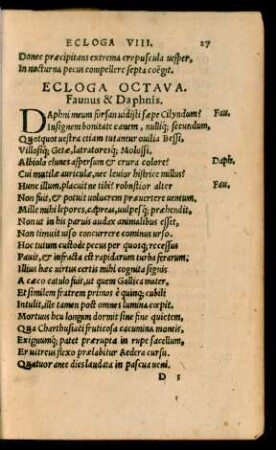 ECLOGA VIII. 27
Donec præcipitans extrema crepuscula uesper,
In nocturna pecus compellere septa coëgit.
ECLOGA OCTAVA.
Faunus & Daphnis.
DAphni meum forsan uidisti sæpe Cilyndum? Fau.
Insignem bonitate canem, nulliq; secundum,
Quotquot uestra etiam tutantur ouilia Bessi,
Villosiq; Getæ, latratoresq; Molossi.
Albiolo clunes aspersum & crura colore? Daph.
Cui mutilæ auriculæ, nec leuior histrice millus?
Hunc illum, placuit ne tibi? robustior alter Fau.
Non fuit, & potuit uolucrem præuertere uentum.
Mille mihi lepores, capreas, uulpesq; præhendit,
Nonut in his paruis audax animalibus esset,
Non timuit uiso concurrere cominus urso.
Hoc tutum custode pecus per quosq; recessus
Pauit, & infracta est rapidarum turba ferarum;
Illius hæc uirtus certis mihi cognita signis
A cæco catulo fuit, ut quem Gallica mater,
Et similem fratrem primos è quinq; cubili
Intulit, ille tamen post omnes lumina expit.
Mortuus heu longum dormit sine fine quietem,
Qua Charthusiaci fruticosa cacumina montis,
Exiguumq; patet prærupta in rupe sacellum,
Er uitreus flexo prælabitur Aedera cursu.
Quatuor ante dies laudata in pascua ueni.
D 3